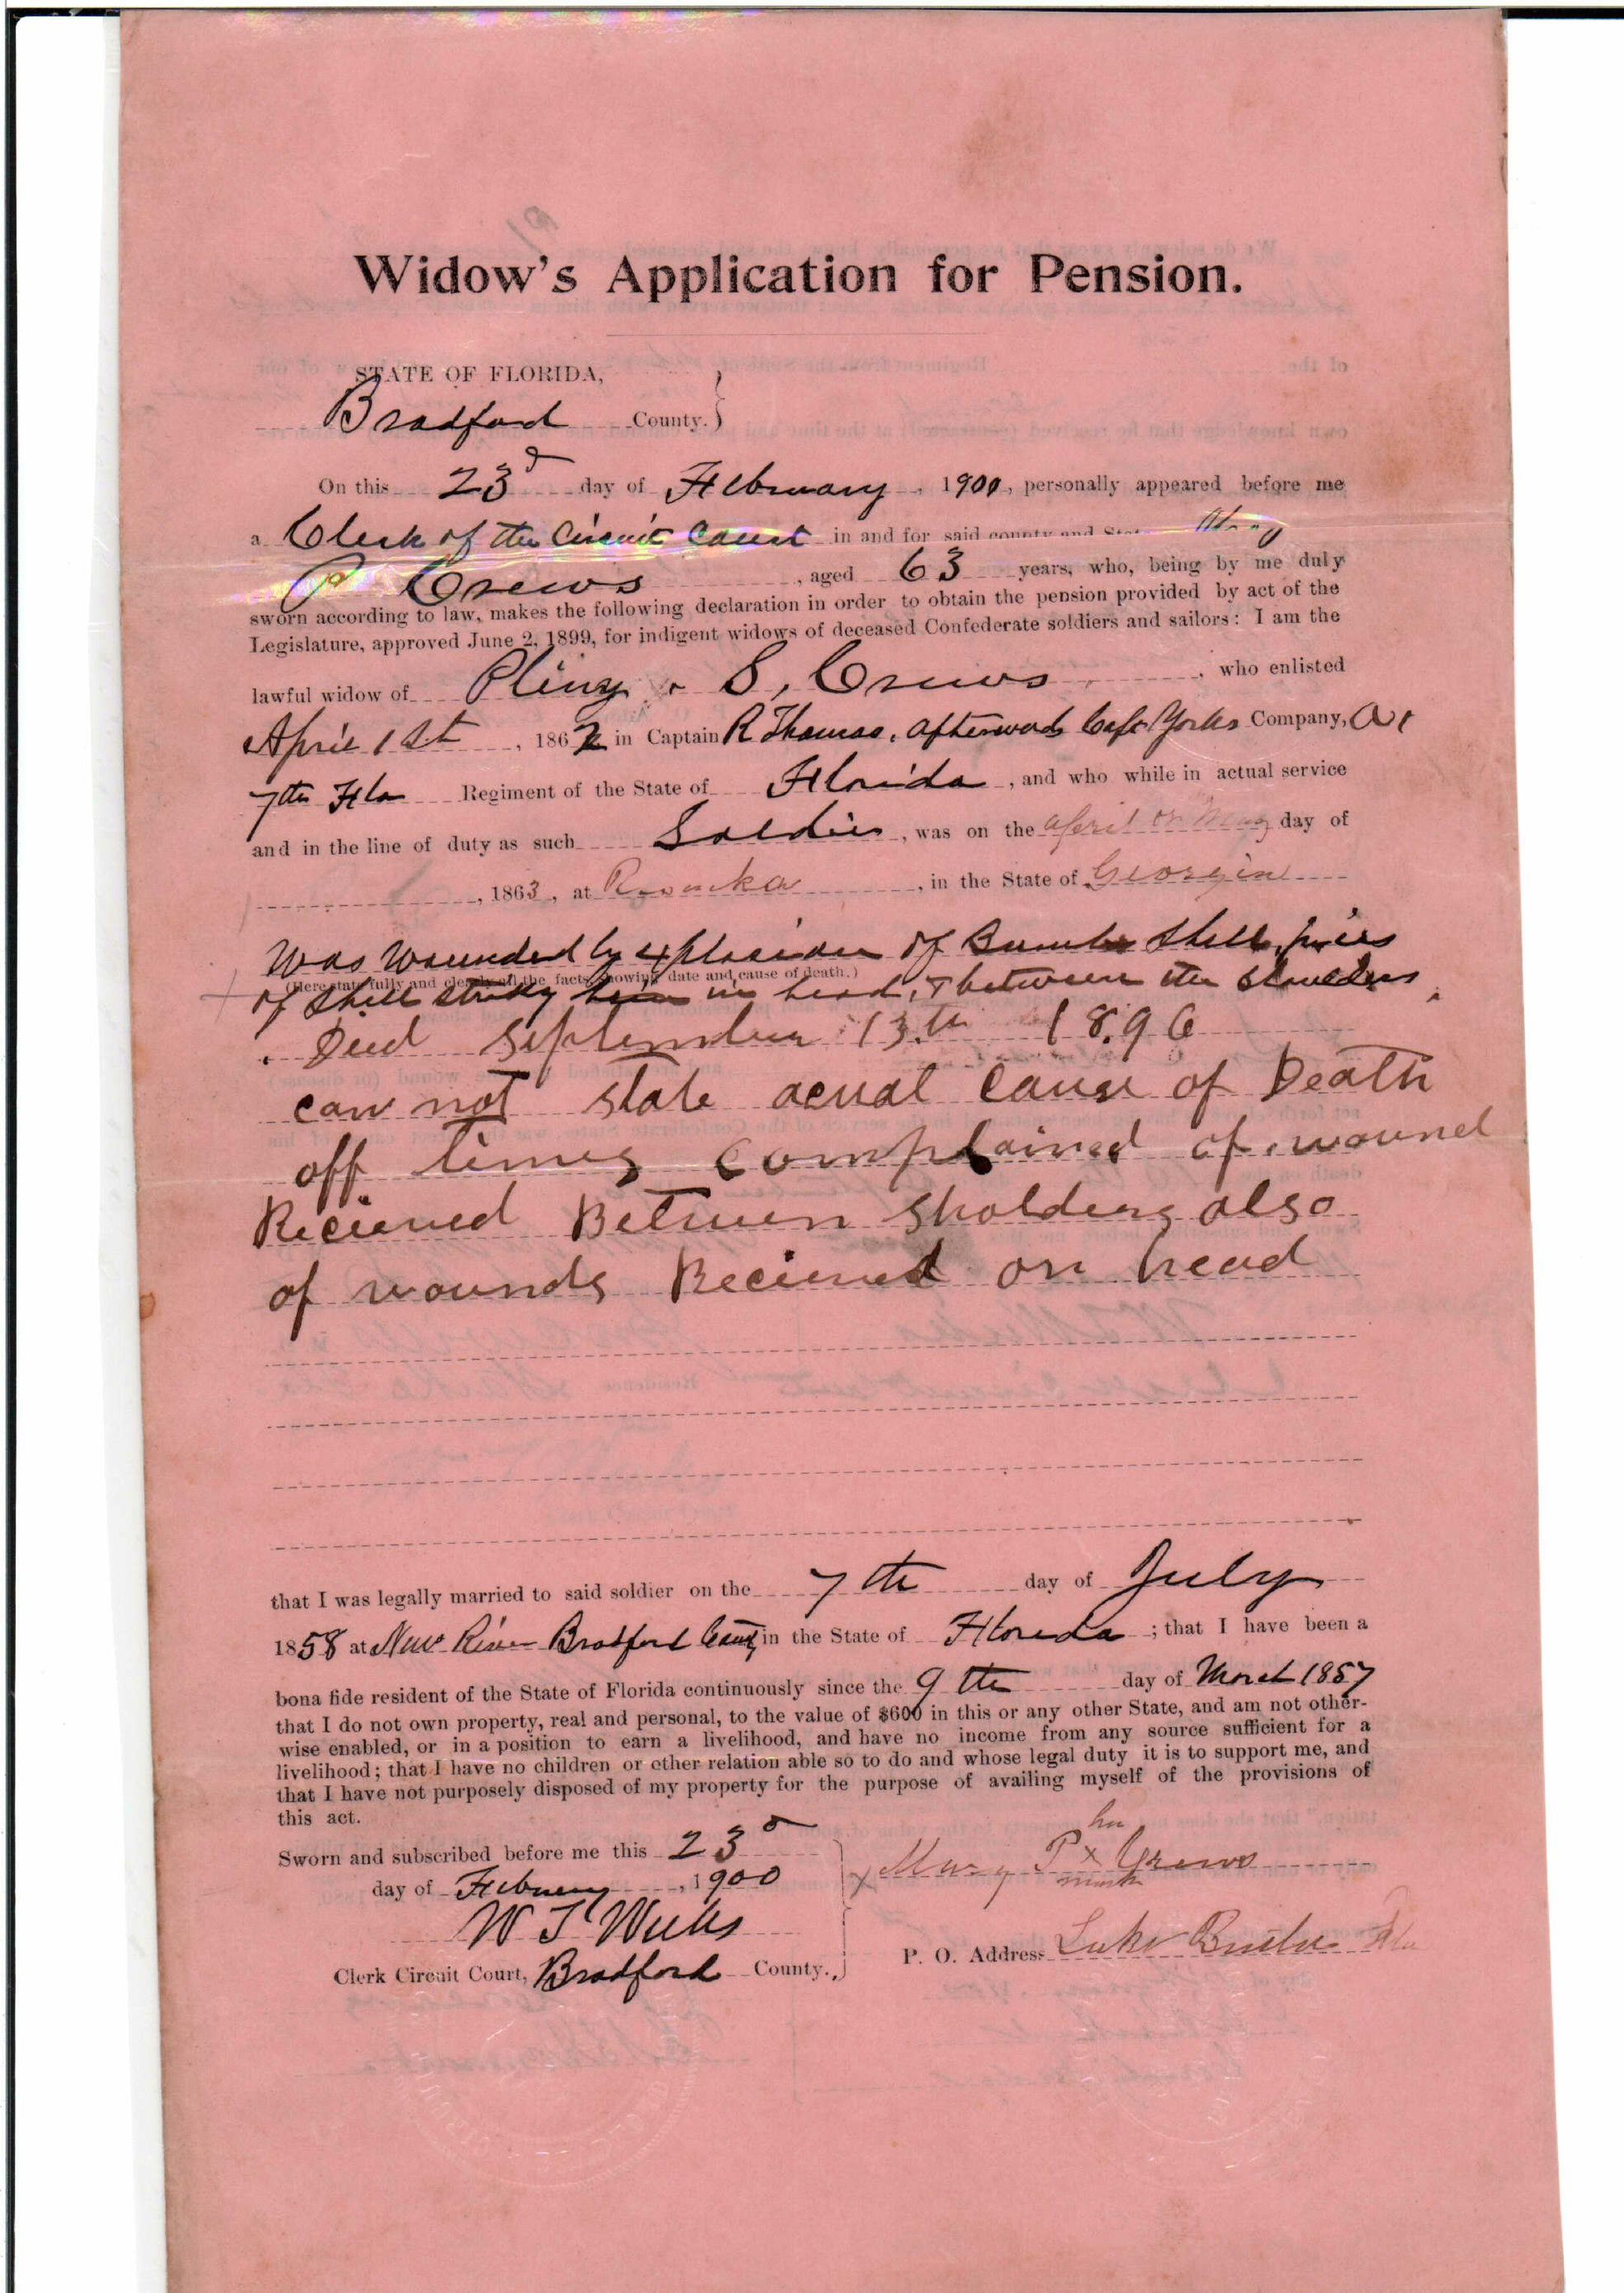 Widow's Application for Pension.
STATE OF FLORIDA,
Bradford County. }
On this 23d day of February, 1900, personally appeared before me
a Clerk of the Circuit Court in and for said county and State Mary
P Crews, aged 63 years, who, being by me duly
sworn according to law, makes the following declaration in order to obtain the pension provided by act of the
Legislature, approved June 2, 1899, for indigent widows of deceased Confederate soldiers and sailors: I am the
lawful widow of Pliny S. Crews, who enlisted
April 1st, 1862 in Captain R Thomas, afterwards Capt Yorks Company,
7th Fla Regiment of the State of Florida, and who while in actual service
and in the line of duty as such Soldier, was on the April or May day of
, 1863, at , in the State of Georgia
Was wounded by explosion of shell, pieces
(Here state fully and clearly all the facts showing date and cause of death.)
of shell him in head, & between the shoulders.
Died September 13th 1896
can not state acual cause of Death
off times complained of wound
Recieved Between sholders also
of wounds Recieved on head
that I was legally married to said soldier on the 7th day of July
1858 at New River Bradford County in the State of Florida; that I have been a
bona fide resident of the State of Florida continuously since the 9th day of March 1857
that I do not own property, real and personal, to the value of $600 in this or any other State, and am not other-
wise enabled, or in a position to earn a livelihood, and have no income from any source sufficient for a
livelihood; that I have no children or other relation able so to do and whose legal duty it is to support me, and
that I have not purposely disposed of my property for the purpose of availing myself of the provisions of
this act.
Sworn and subscribed before me this 23d
day of February, 1900
her
x Mary P x Crews
mark
W T Weeks
P. O. Address Lake Butler Fla
Clerk Circuit Court, Bradford County.